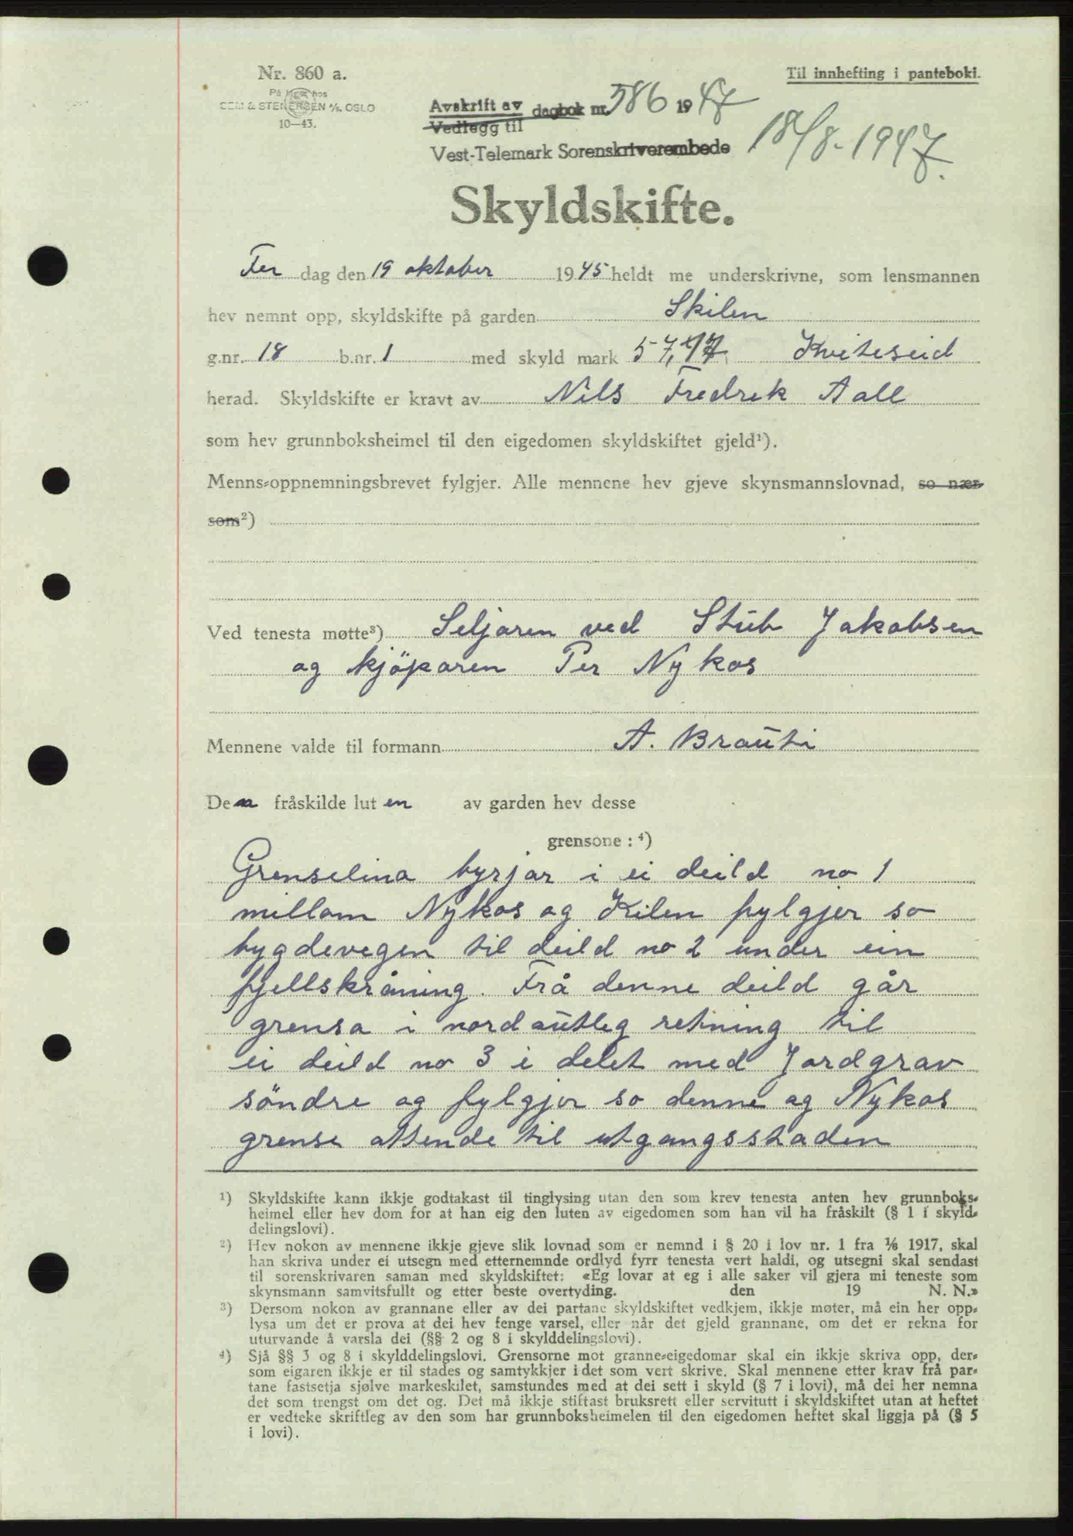 Nr. 860 a.
Til innhefting i panteboki.
På lager hos
SEM & STENERSEN A/S. OSLO
10—43.
Avskrift av dagbok nr. 586 1947
Vedlegg til
Vest-Telemark Sorenskriverembede
18/8-1947.
Skyldskifte.
Fre dag den 19 oktober 1945 heldt me underskrivne, som lensmannen
hev nemnt opp, skyldskifte på garden Skilen
g.nr. 18 b.nr. 1 med skyld mark 57,47 Kviteseid
herad. Skyldskifte er kravt av Nils Fredrik Aall
som hev grunnboksheimel til den eigedomen skyldskiftet gjeld¹).
Menns-oppnemningsbrevet fylgjer. Alle mennene hev gjeve skynsmannslovnad, so nær
som²)
Ved tenesta møtte³) Seljaren ved Stub Jakobsen
og kjöparen Per Nykos
Mennene valde til formann A. Brauti
De fråskilde lut en av garden hev desse
grensone : ⁴)
Grenselina byrjar i ei deild no 1
millom Nykos og Kilen fylgjer so
bygdevegen til deild no 2 under ein
fjellskråning. Frå denne deild går
grensa i nordautleg retning til
ei deild no 3 i delet med Jordgrav
söndre og fylgjer so denne og Nykos
grense attende til utgangsstaden
¹) Skyldskifte kann ikkje godtakast til tinglysing utan den som krev tenesta anten hev grunnboks-
heimel eller hev dom for at han eig den luten av eigedomen som han vil ha fråskilt (§ 1 i skyld-
delingslovi).
²) Hev nokon av mennene ikkje gjeve slik lovnad som er nemnd i § 20 i lov nr. 1 fra 1/6 1917, skal
han skriva under ei utsegn med etternemnde ordlyd fyrr tenesta vert haldi, og utsegni skal sendast
til sorenskrivaren saman med skyldskiftet: «Eg lovar at eg i alle saker vil gjera mi teneste som
skynsmann samvitsfullt og etter beste overtyding. den 19 N. N.»
³) Dersom nokon av grannane eller av dei partane skyldskiftet vedkjem, ikkje møter, må ein her opp-
lysa um det er prova at dei hev fenge varsel, eller når det gjeld grannane, om det er rekna for
uturvande å varsla dei (§§ 2 og 8 i skylddelingslovi).
⁴) Sjå §§ 3 og 8 i skylddelingslovi. Grensorne mot granne-eigedomar skal ein ikkje skriva opp, der-
som eigaren ikkje er til stades og samtykkjer i det som vert skrive. Skal mennene etter krav frå par-
tane fastsetja sjølve markeskilet, samstundes med at dei sett i skyld (§ 7 i lovi), må dei her nemna
det som trengst om det og. Det må ikkje stiftast bruksrett eller servitutt i skyldskiftet utan at heftet
er vedteke skriftleg av den som har grunnboksheimelen til den eigedomen heftet skal liggja på (§ 5
i lovi).